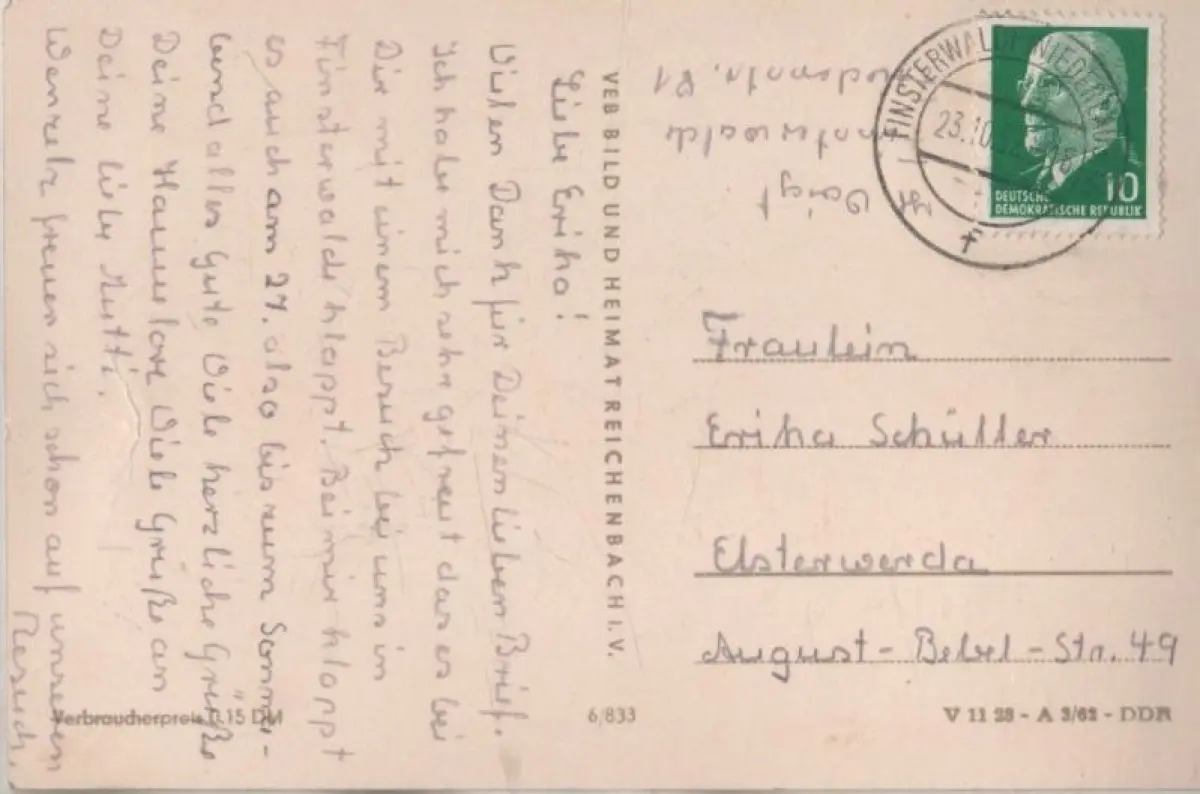 Liebe Erika!
Vielen Dank für Deinen lieben Brief.
Ich habe mich sehr gefreut das es bei
Dir mit einem Besuch bei uns in
Finsterwalde klappt. Bei mir klappt
es auch am 27. also bis zum Sonna-
bend alles Gute Viele herzliche Grüße
Deine Hannelore Viele Grüße an
Deine liebe Mutti.
Wenzels freuen sich schon auf unseren
Besuch.
VEB BILD UND HEIMAT REICHENBACH I. V.
Voigt
FINSTERWALDE (NIEDERLAU
23.10.
DEUTSCHE
DEMOKRATISCHE REPUBLIK
10
Fräulein
Erika Schüller
Elsterwerda
August-Bebel-Str. 49
Verbraucherpreis 0.15 DM
6/833
V 11 28 - A 3/62 - DDR